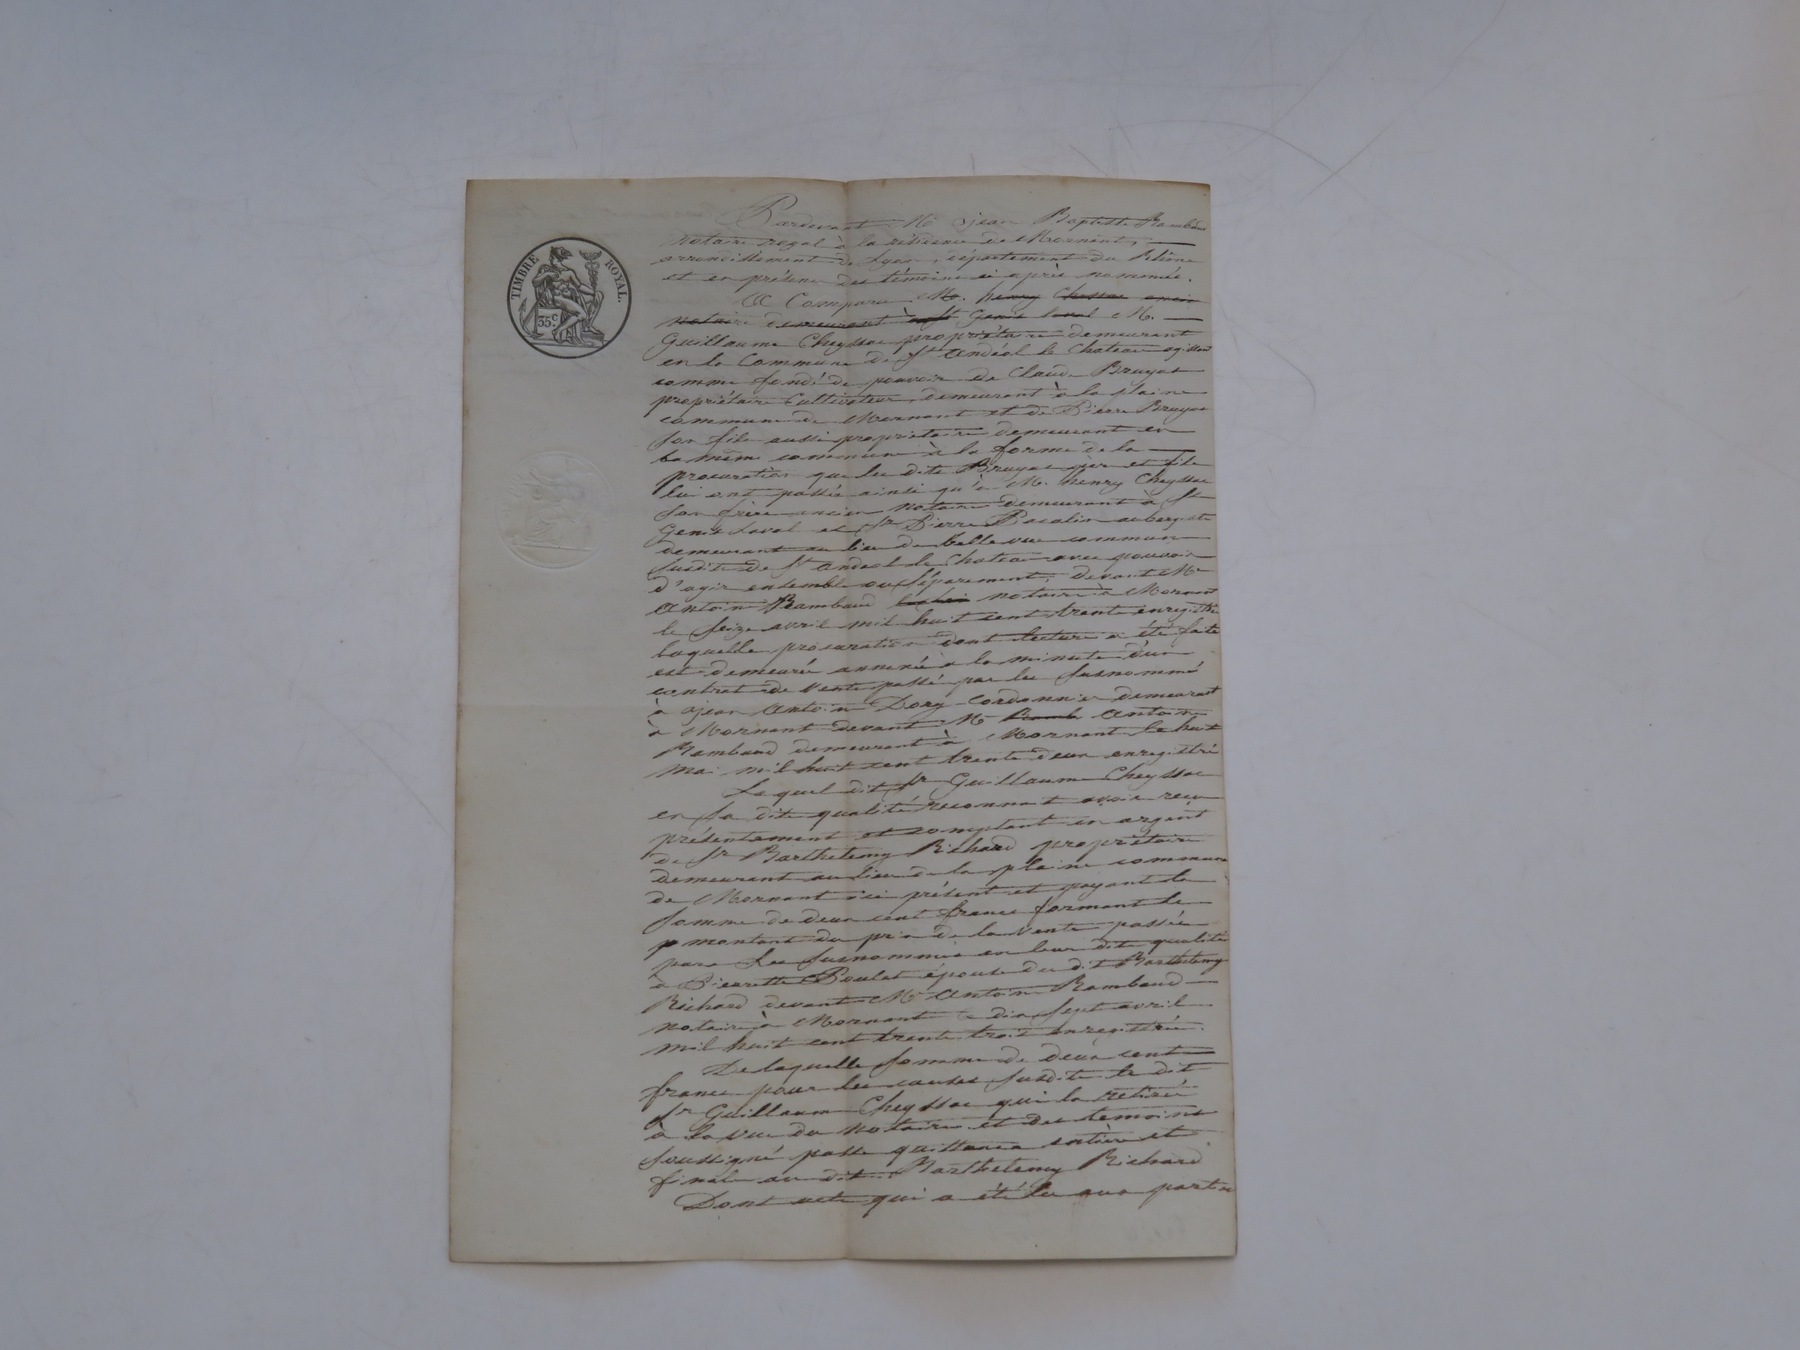 TIMBRE ROYAL.
35c.
Pardevant Me jean Baptiste Rambaud
notaire royal à la résidence de Mornant,
arrondissement de Lyon, département du Rhône
et en présence des témoins ci après nommés.
A Comparu M. henry Chessac ancien
notaire demeurant à st Genis laval M.
Guillaume Cheyssac propriétaire demeurant
en la Commune de St andéol le Chateau agissant
comme fondé de pouvoir de Claude Bruyas
propriétaire Cultivateur, demeurant à la plaine
commune de Mornant et de Pierre Bruyas
son fils aussi propriétaire demeurant en
la même commune à la forme de la
procuration que les dits Bruyas père et fils
lui ont passée ainsi qu'à M. henry Cheyssac
son frère ancien notaire demeurant à St
Genis Laval et Sr Pierre Pacalin aubergiste
demeurant au lieu de belle vue commune
susdite de St andéol le Chateau avec pouvoir
d'agir ensemble ou séparement, devant Me
Antoine Rambaud notaire à Mornant
le seize avril mil huit cent trente enregistré
laquelle procuration dont lecture a été faite
est demeurée annexée à la minute d'un
contrat de vente passé par les susnommés
à jean Antoine Dory cordonnier demeurant
à Mornant devant Me Antoine
Rambaud demeurant à Mornant le huit
mai mil huit cent trente deux enregistré
Lequel dit Sr Guillaume Cheyssac
en sa dite qualité reconnait avoir reçu
présentement et comptant en argent
de Sr Barthelemy Richard propriétaire
demeurant au lieu de la plaine commune
de Mornant ici présent et payant la
somme de deux cent francs formant le
montant du prix de la vente passée
par les susnommés en leur dite qualité
à Pierrette Boulat épouse du dit Barthelemy
Richard devant Me Antoine Rambaud
notaire à Mornant le dix sept avril
mil huit cent trente trois enregistrée.
De laquelle somme de deux cents
francs pour les causes susdites le dit
Sr Guillaume Cheyssac qui la retirée
à la vue du notaire et des temoins
soussigné passe quittance entière et
finale au dit Barthelemy Richard
Dont acte qui a été lu aux parties